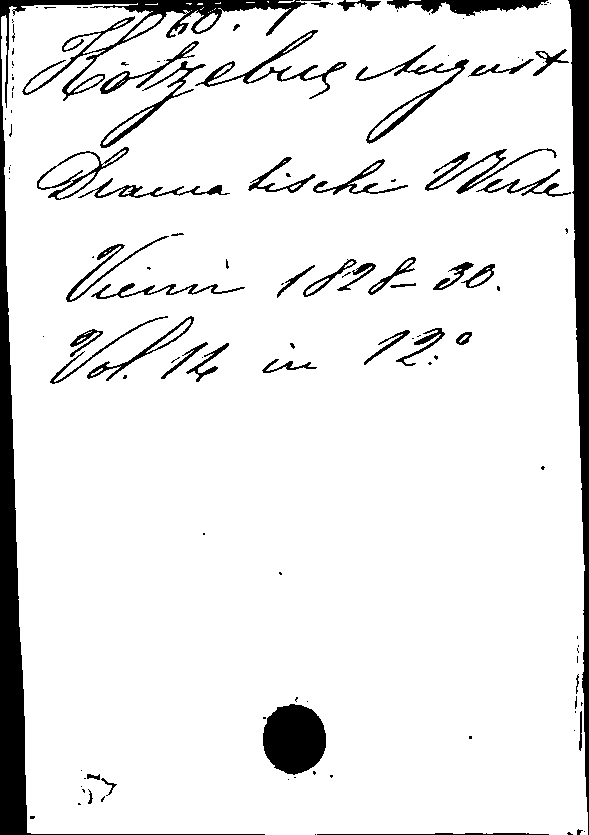 60.
Kotzebue August
Dramatische Werke
Vienn 1828-30.
Vol. 14 in 12.°